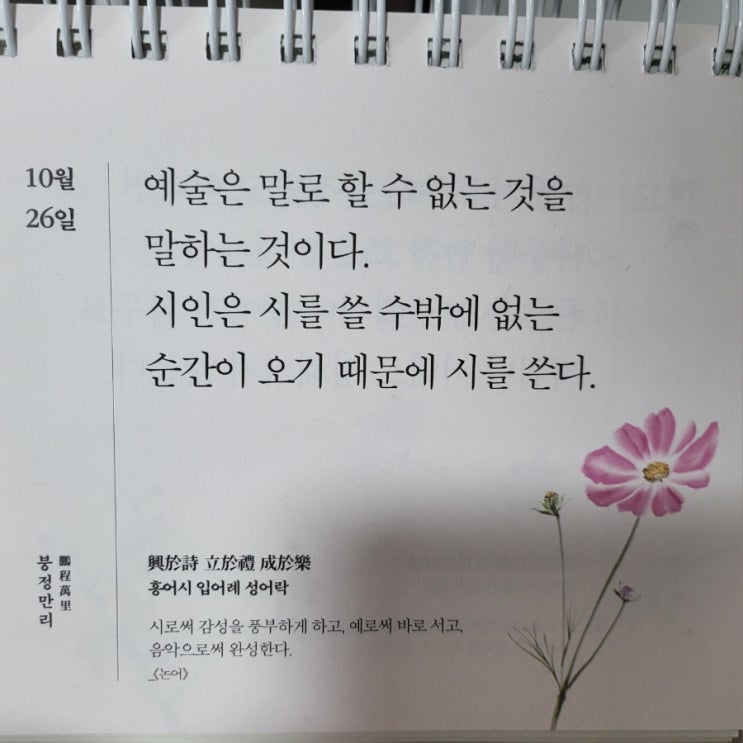 10월
26일
예술은 말로 할 수 없는 것을
말하는 것이다.
시인은 시를 쓸 수밖에 없는
순간이 오기 때문에 시를 쓴다.
鵬程萬里
붕정만리
興於詩 立於禮 成於樂
흥어시 입어례 성어락
시로써 감성을 풍부하게 하고, 예로써 바로 서고,
음악으로써 완성한다.
_《논어》